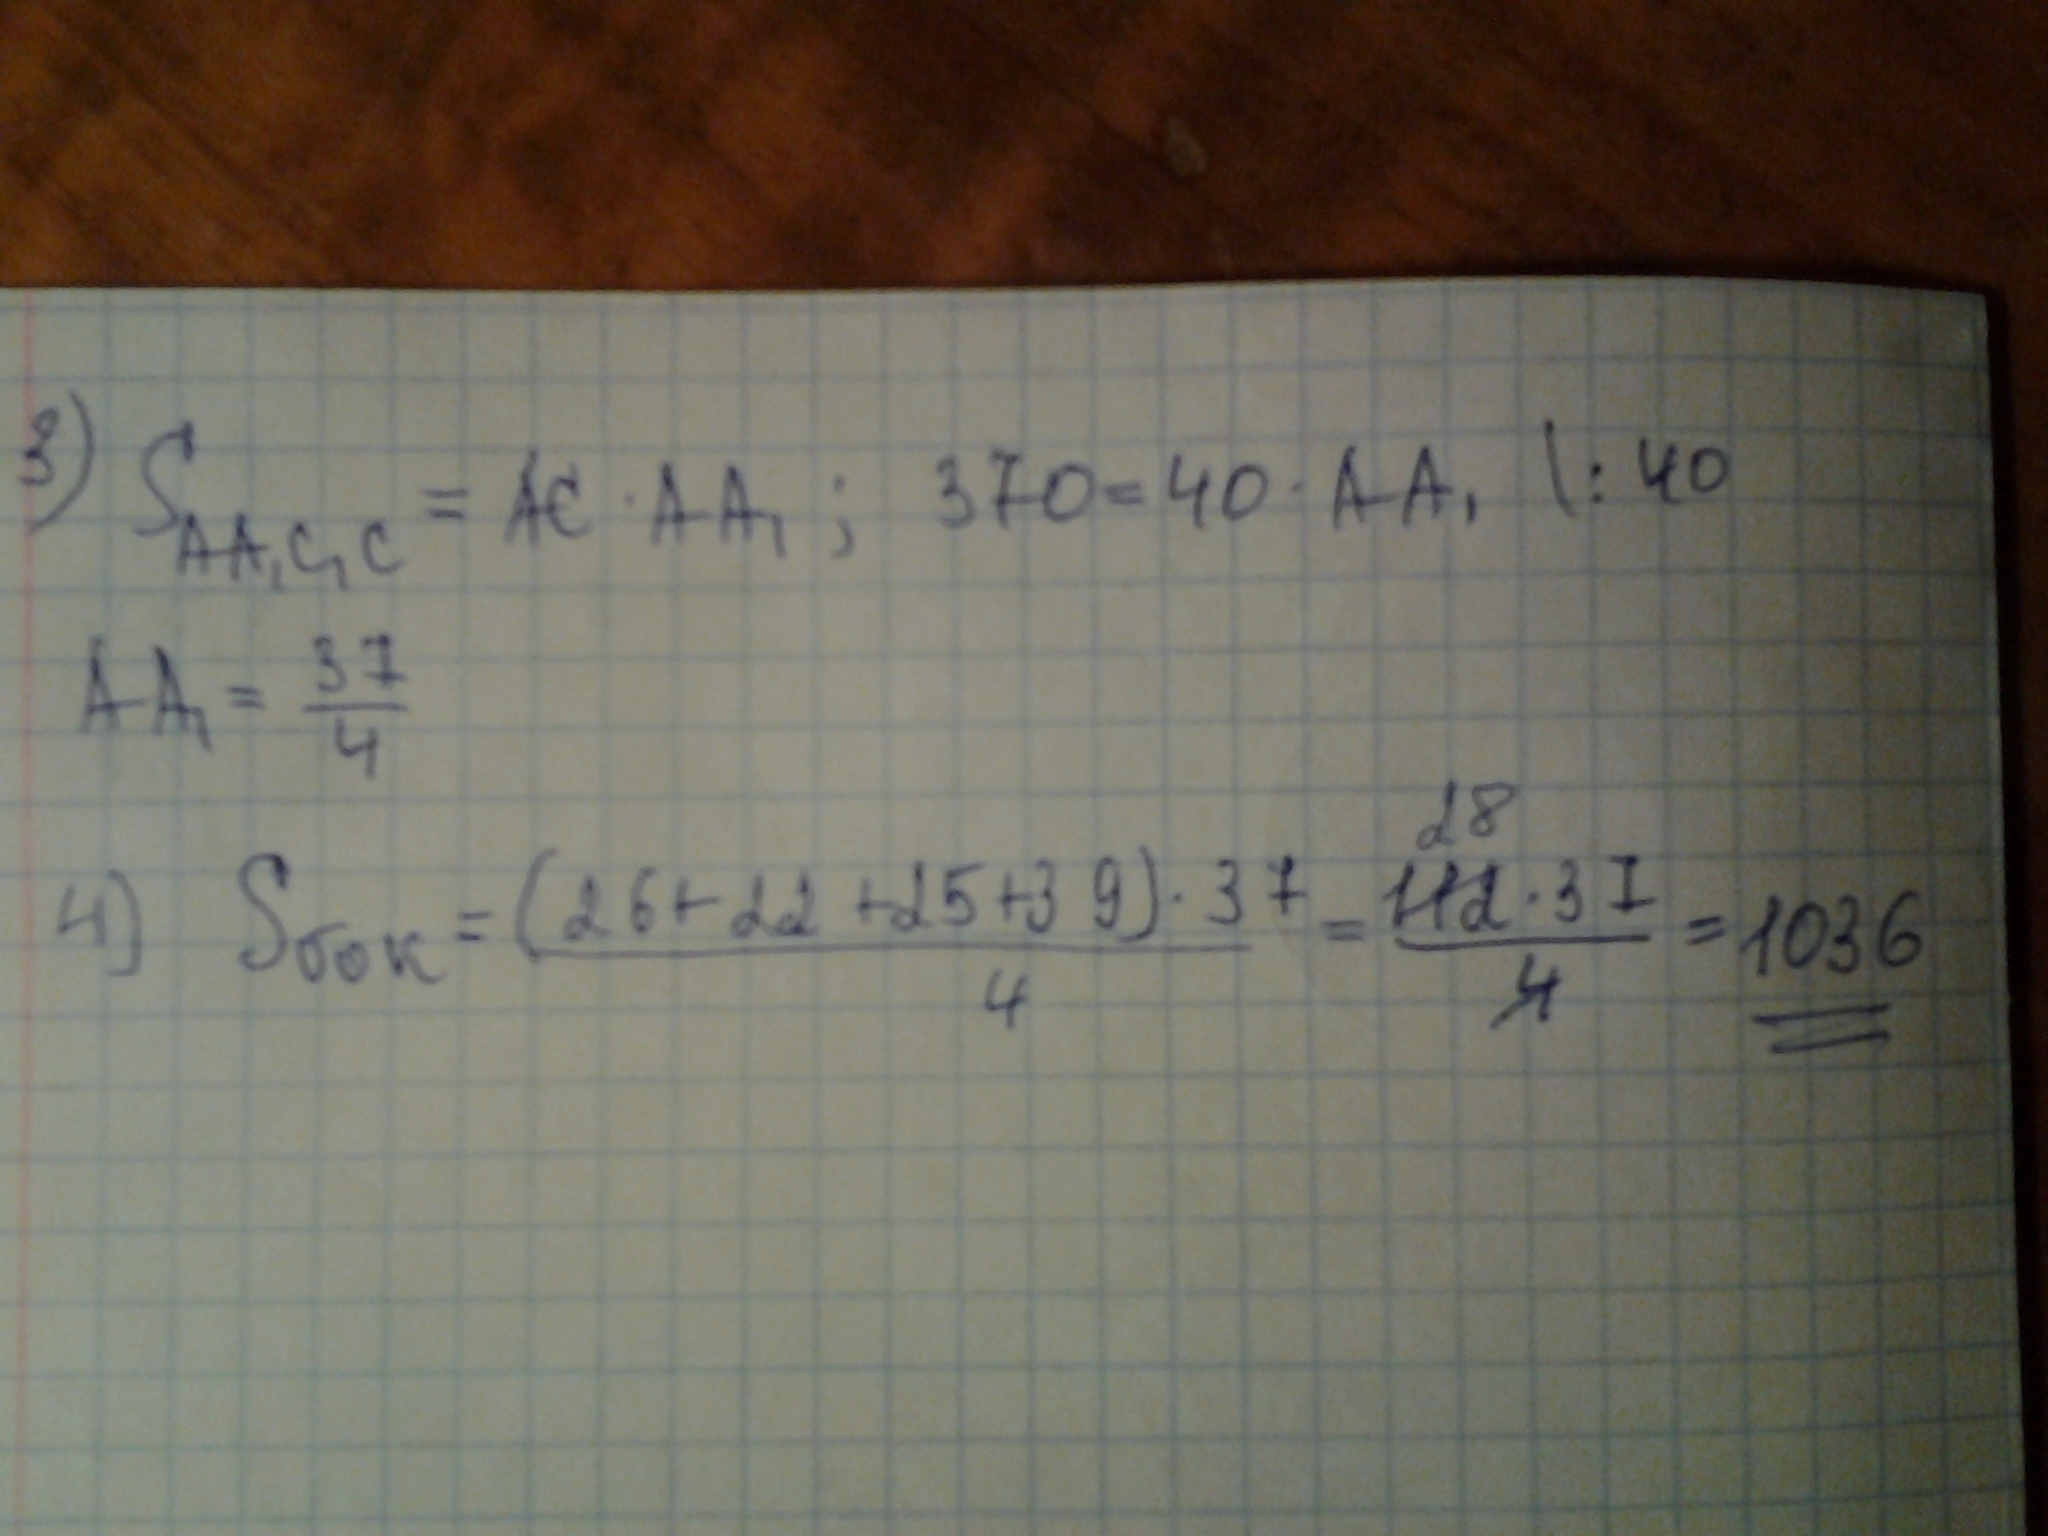 3) S_{AA₁C₁C} = AC · AA₁ ; 370 = 40 · AA₁ \: 40
AA₁ = 37/4
4) Sбок = (26+22+25+39)·37/4 = 28 112·37/4 = 1036